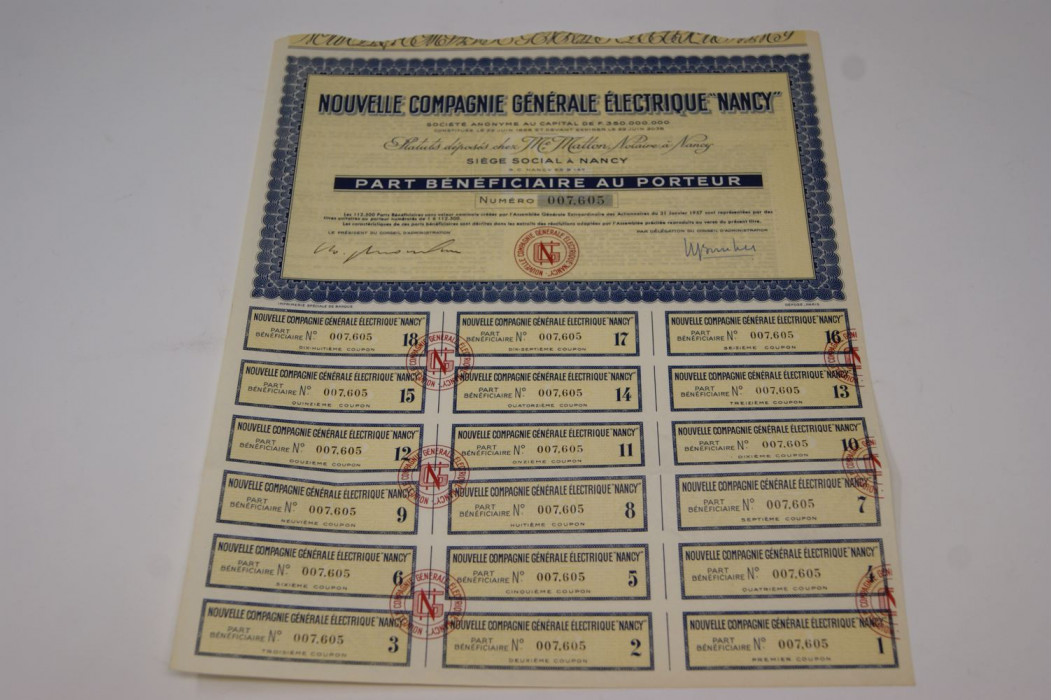 NOUVELLE COMPAGNIE GÉNÉRALE ÉLECTRIQUE "NANCY"
SOCIÉTÉ ANONYME AU CAPITAL DE F. 350.000.000
Statuts déposés chez Me Mallon, Notaire à Nancy
SIÈGE SOCIAL À NANCY
PART BÉNÉFICIAIRE AU PORTEUR
NUMÉRO 007,605
Les 112.500 Parts Bénéficiaires sans valeur nominale créées par l'Assemblée Générale Extraordinaire des Actionnaires du 31 Janvier 1957 sont représentées par des
titres unitaires au porteur numérotés de 1 à 112.500.
Les caractéristiques de ces parts bénéficiaires sont décrites dans les extraits des résolutions adoptées par l'Assemblée précitée reproduits au verso du présent titre.
LE PRÉSIDENT DU CONSEIL D'ADMINISTRATION PAR DÉLÉGATION DU CONSEIL D'ADMINISTRATION
NOUVELLE COMPAGNIE GÉNÉRALE ÉLECTRIQUE "NANCY"
IMPRIMERIE SPÉCIALE DE BANQUE
NOUVELLE COMPAGNIE GÉNÉRALE ÉLECTRIQUE "NANCY"
PART BÉNÉFICIAIRE No 007,605 18
DIX-HUITIÈME COUPON
NOUVELLE COMPAGNIE GÉNÉRALE ÉLECTRIQUE "NANCY"
PART BÉNÉFICIAIRE No 007,605 17
DIX-SEPTIÈME COUPON
NOUVELLE COMPAGNIE GÉNÉRALE ÉLECTRIQUE "NANCY"
PART BÉNÉFICIAIRE No 007,605 16
SEIZIÈME COUPON
NOUVELLE COMPAGNIE GÉNÉRALE ÉLECTRIQUE "NANCY"
PART BÉNÉFICIAIRE No 007,605 15
QUINZIÈME COUPON
NOUVELLE COMPAGNIE GÉNÉRALE ÉLECTRIQUE "NANCY"
PART BÉNÉFICIAIRE No 007,605 14
QUATORZIÈME COUPON
NOUVELLE COMPAGNIE GÉNÉRALE ÉLECTRIQUE "NANCY"
PART BÉNÉFICIAIRE No 007,605 13
TREIZIÈME COUPON
NOUVELLE COMPAGNIE GÉNÉRALE ÉLECTRIQUE "NANCY"
PART BÉNÉFICIAIRE No 007,605 12
DOUZIÈME COUPON
NOUVELLE COMPAGNIE GÉNÉRALE ÉLECTRIQUE "NANCY"
PART BÉNÉFICIAIRE No 007,605 11
ONZIÈME COUPON
NOUVELLE COMPAGNIE GÉNÉRALE ÉLECTRIQUE "NANCY"
PART BÉNÉFICIAIRE No 007,605 10
DIXIÈME COUPON
NOUVELLE COMPAGNIE GÉNÉRALE ÉLECTRIQUE "NANCY"
PART BÉNÉFICIAIRE No 007,605 9
NEUVIÈME COUPON
NOUVELLE COMPAGNIE GÉNÉRALE ÉLECTRIQUE "NANCY"
PART BÉNÉFICIAIRE No 007,605 8
HUITIÈME COUPON
NOUVELLE COMPAGNIE GÉNÉRALE ÉLECTRIQUE "NANCY"
PART BÉNÉFICIAIRE No 007,605 7
SEPTIÈME COUPON
NOUVELLE COMPAGNIE GÉNÉRALE ÉLECTRIQUE "NANCY"
PART BÉNÉFICIAIRE No 007,605 6
SIXIÈME COUPON
NOUVELLE COMPAGNIE GÉNÉRALE ÉLECTRIQUE "NANCY"
PART BÉNÉFICIAIRE No 007,605 5
CINQUIÈME COUPON
NOUVELLE COMPAGNIE GÉNÉRALE ÉLECTRIQUE "NANCY"
PART BÉNÉFICIAIRE No 007,605 4
QUATRIÈME COUPON
NOUVELLE COMPAGNIE GÉNÉRALE ÉLECTRIQUE "NANCY"
PART BÉNÉFICIAIRE No 007,605 3
TROISIÈME COUPON
NOUVELLE COMPAGNIE GÉNÉRALE ÉLECTRIQUE "NANCY"
PART BÉNÉFICIAIRE No 007,605 2
DEUXIÈME COUPON
NOUVELLE COMPAGNIE GÉNÉRALE ÉLECTRIQUE "NANCY"
PART BÉNÉFICIAIRE No 007,605 1
PREMIER COUPON